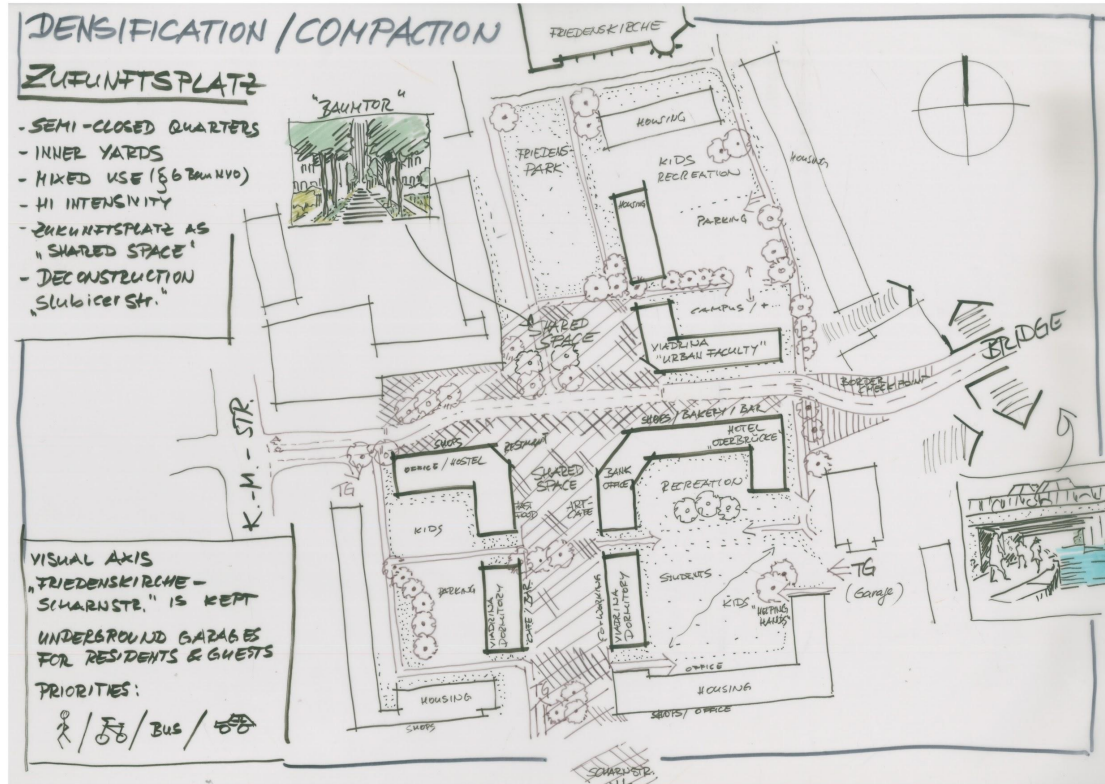 DENSIFICATION / COMPACTION
ZUFUNFTSPLATZ
- SEMI-CLOSED QUARTERS
- INNER YARDS
- MIXED USE (§6 BauNVO)
- HI INTENSIVITY
- ZUKUNFTSPLATZ AS
"SHARED SPACE"
- DECONSTRUCTION
"Slubicer Str."
"BAUMTOR"
FRIEDENSKIRCHE
FRIEDENS-
PARK
HOUSING
KIDS
RECREATION
HOUSING
HOUSING
PARKING
SHARED
SPACE
CAMPUS / +
VIADRINA
"URBAN FACULTY"
BRIDGE
BORDER
CHECKPOINT
K.-M.-STR.
SHOPS
RESTAURANT
OFFICE / HOSTEL
TG
SHARED
SPACE
SHOPS / BAKERY / BAR
HOTEL
"ODERBRÜCKE"
BANK
OFFICE
RECREATION
KIDS
FAST
FOOD
ART
CAFE
PARKING
VIADRINA
DORMITORY
CAFE / BAR
CO-WORKING
VIADRINA
DORMITORY
STUDENTS
KIDS
"HELPING
HANDS"
TG
(Garage)
OFFICE
HOUSING
SHOPS / OFFICE
HOUSING
SHOPS
SCHARNSTR.
VISUAL AXIS
"FRIEDENSKIRCHE-
SCHARNSTR." IS KEPT
UNDERGROUND GARAGES
FOR RESIDENTS & GUESTS
PRIORITIES:
/ / BUS /